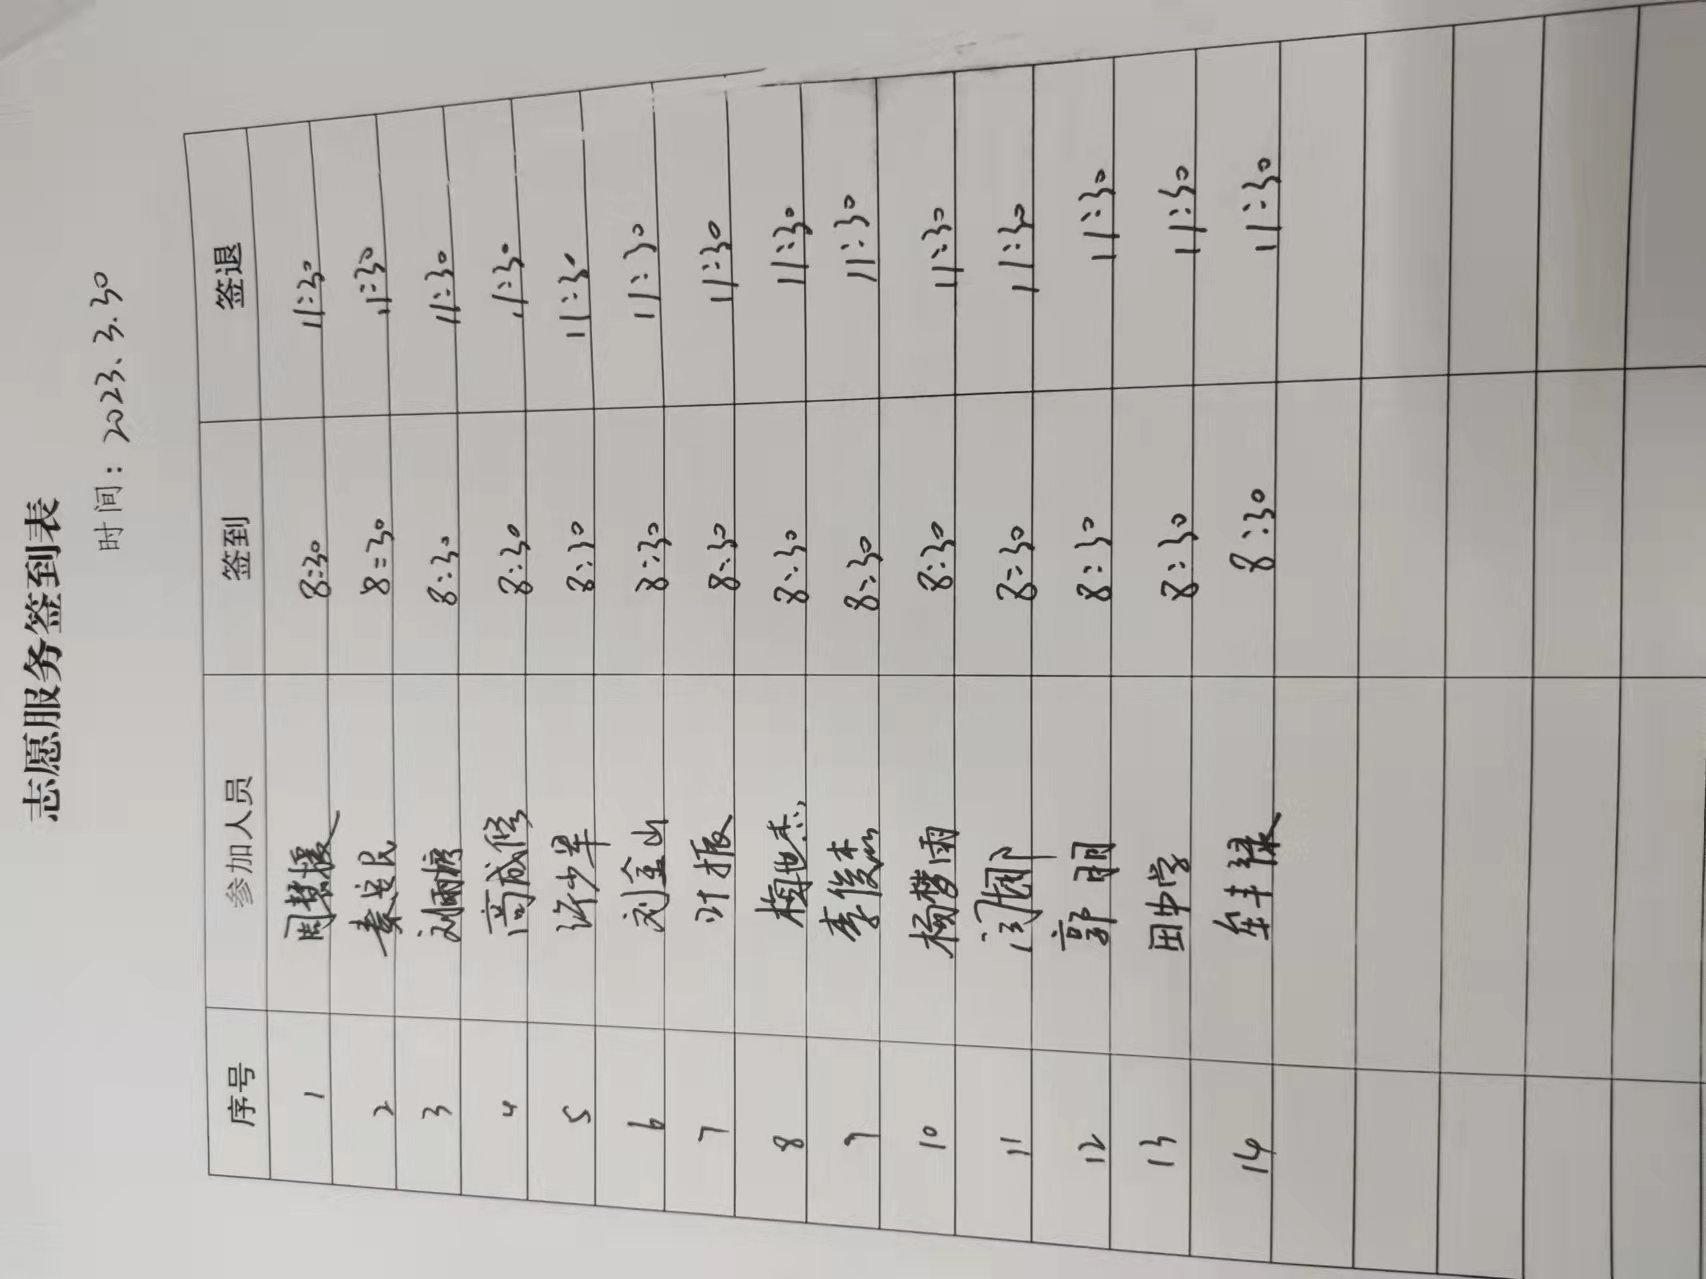 志愿服务签到表
时间：2023、3.30
序号 参加人员 签到 签退
1 周慧媛 8:30 11:30
2 秦运民 8:30 11:30
3 刘丽 8:30 11:30
4 高成 8:30 11:30
5 许少军 8:30 11:30
6 刘金山 8:30 11:30
7 叶振 8:30 11:30
8 梅世杰 8:30 11:30
9 李俊杰 8:30 11:30
10 杨梦雨 8:30 11:30
11 8:30 11:30
12 郭明 8:30 11:30
13 田中学 8:30 11:30
14 牟丰 8:30 11:30